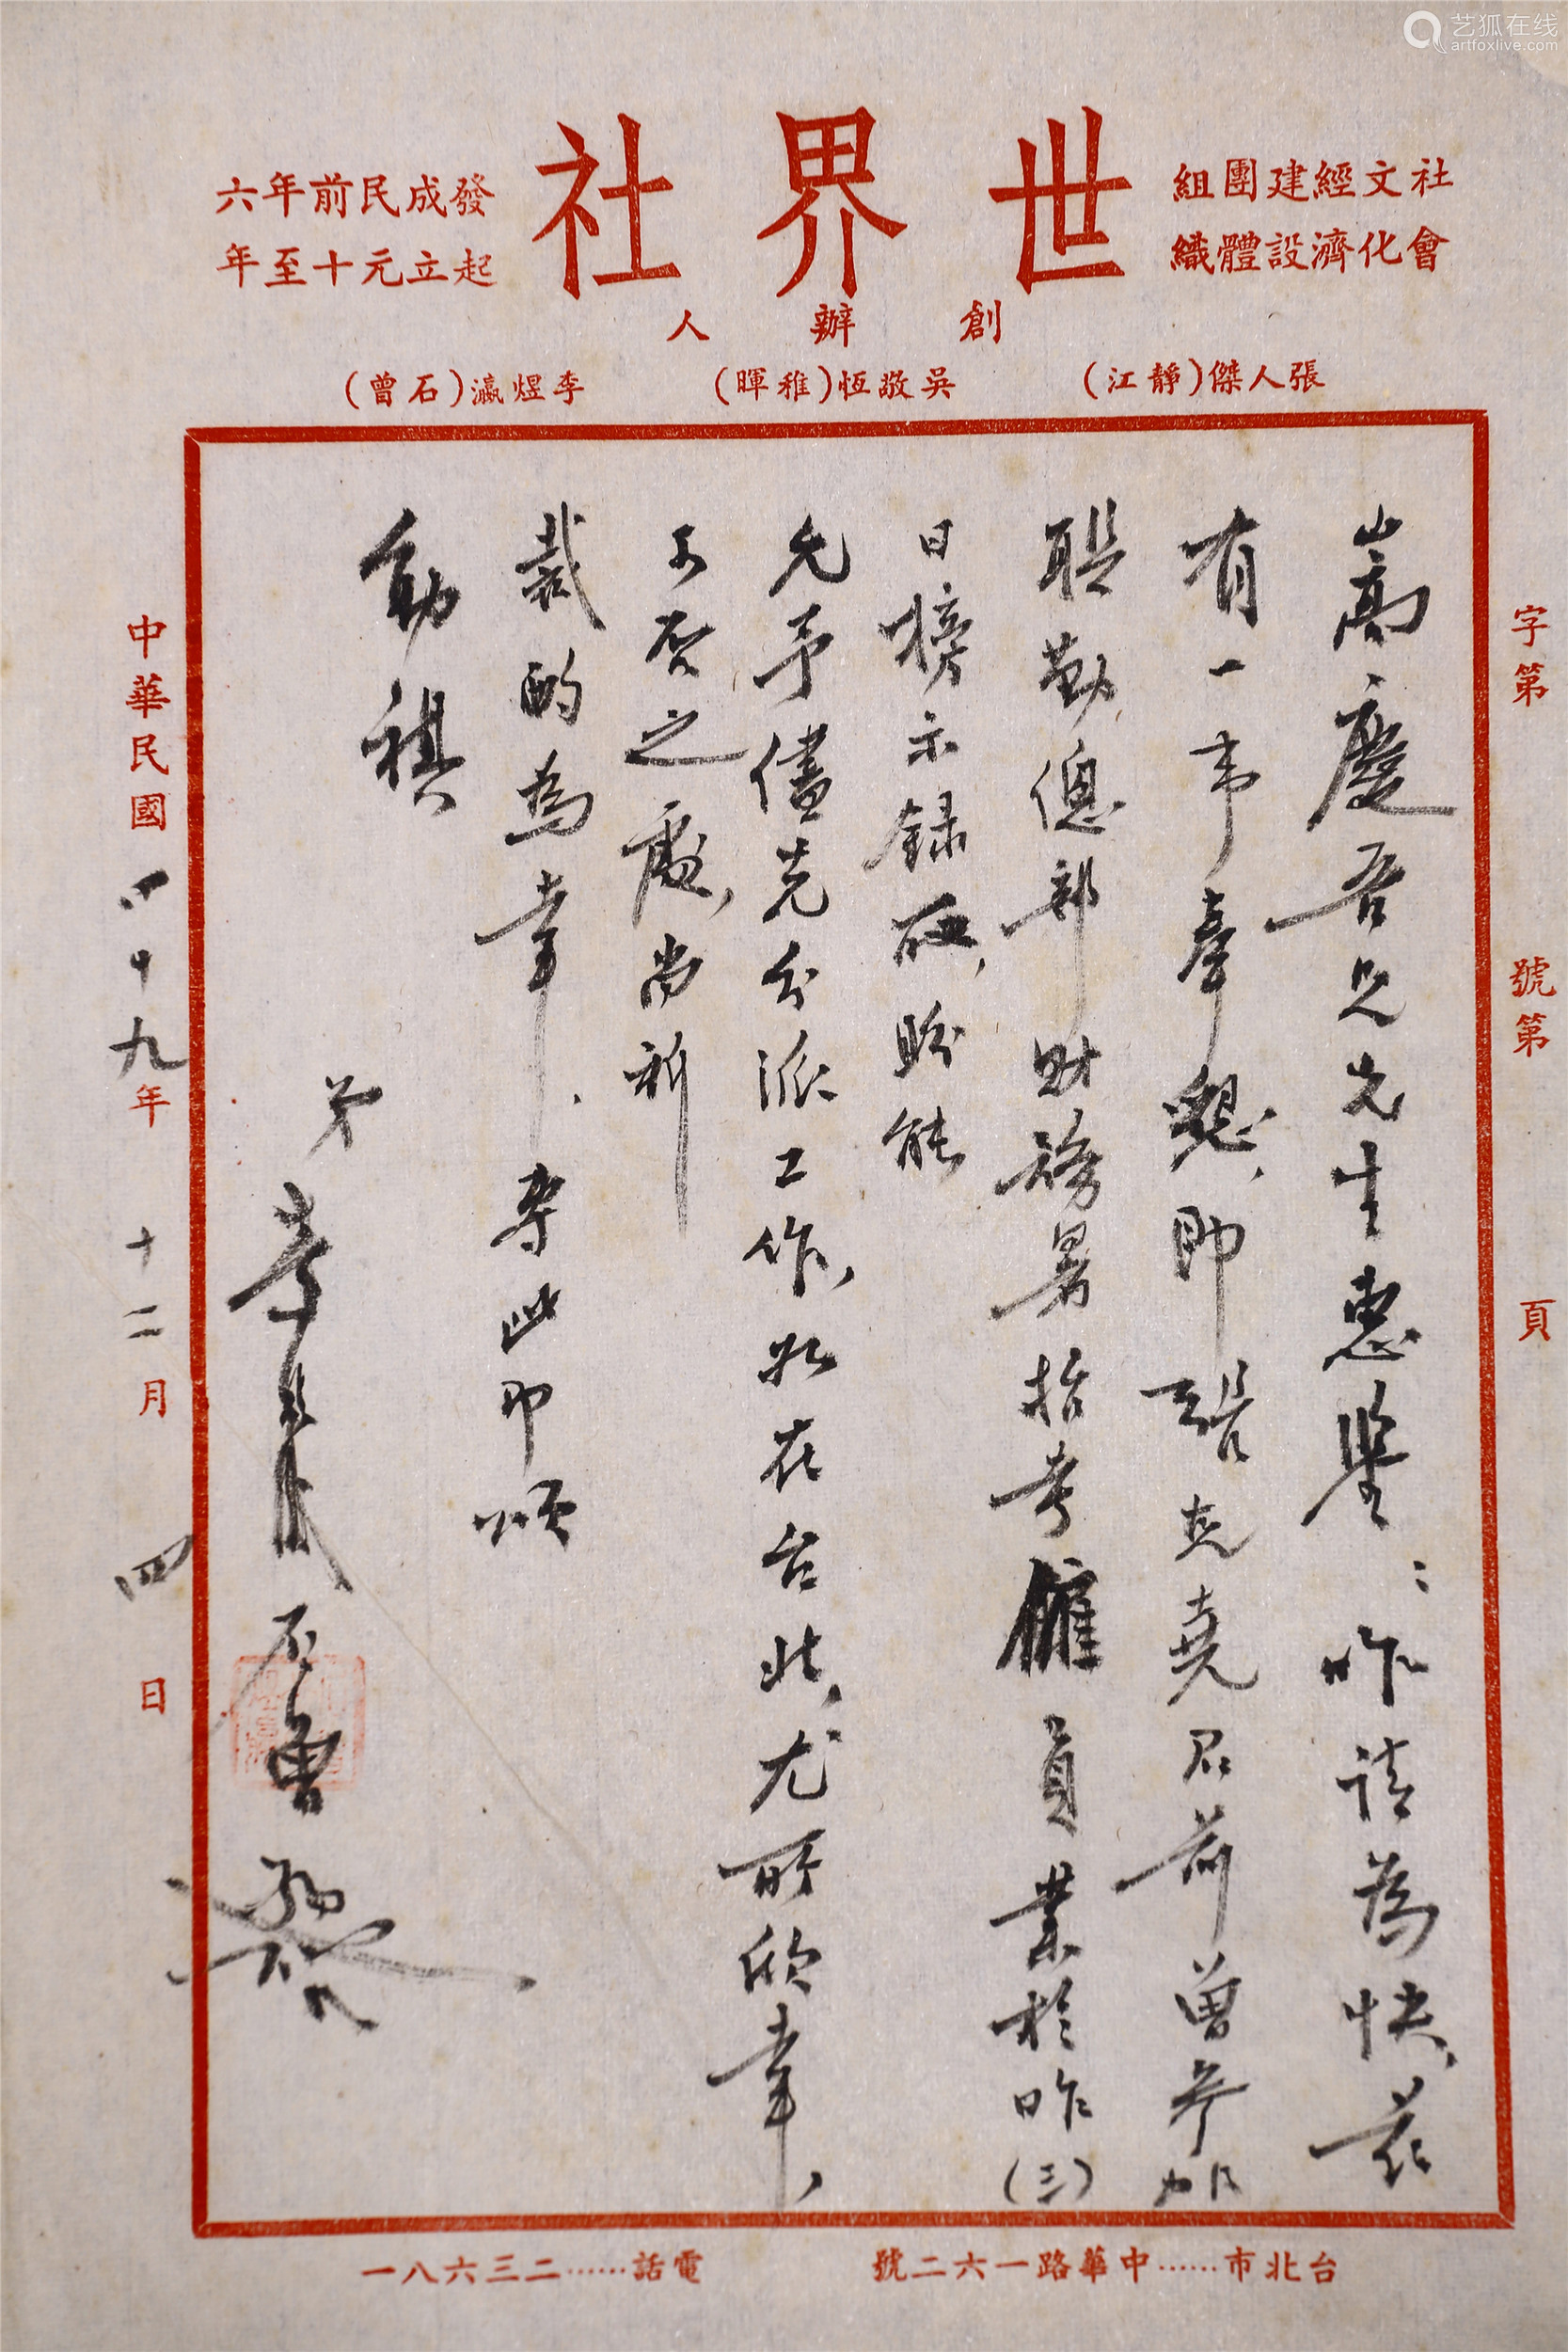 艺狐在线
artfoxlive.com
世界社
社會
文化
經濟
建設
團體
組織
發起
成立
民元
前十
年至
六年
創辦人
張人傑(靜江)
吳敬恆(稚暉)
李煜瀛(石曾)
字第
號第
頁
嵩慶吾兄先生惠鑒：昨談為快，茲
有一事奉懇，即趙克堯君前曾參加
聯勤總部財務署招考僱員業於昨(三)
日榜示錄取，盼能
允予儘先分派工作，如在台北，尤所欣幸，
可否之處，尚祈
裁酌為幸．專此即頌
勛祺
弟李煜瀛石曾
中華民國四十九年十二月四日
台北市……中華路一六二號
電話……二三六八一